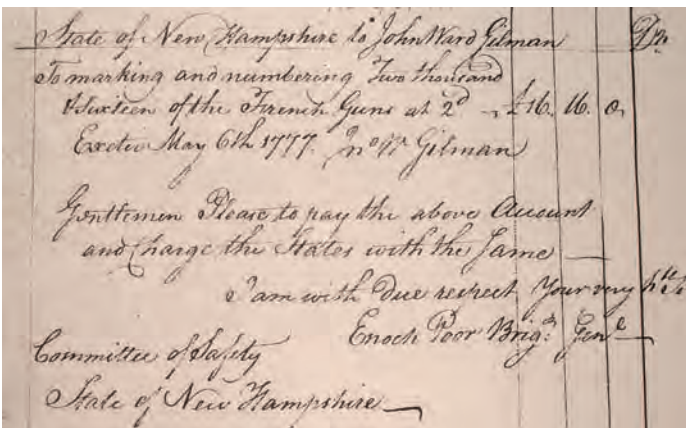 State of New Hampshire to John Ward Gilman Dr.
To marking and numbering Two thousand
& Sixteen of the French Guns at 2d £16. 16. 0
Exeter May 6th 1777. Jno W Gilman
Gentlemen Please to pay the above Account
and Charge the States with the Same
I am with Due respect Your very
Enoch Poor Brigr Genl
Committee of Safety
State of New Hampshire